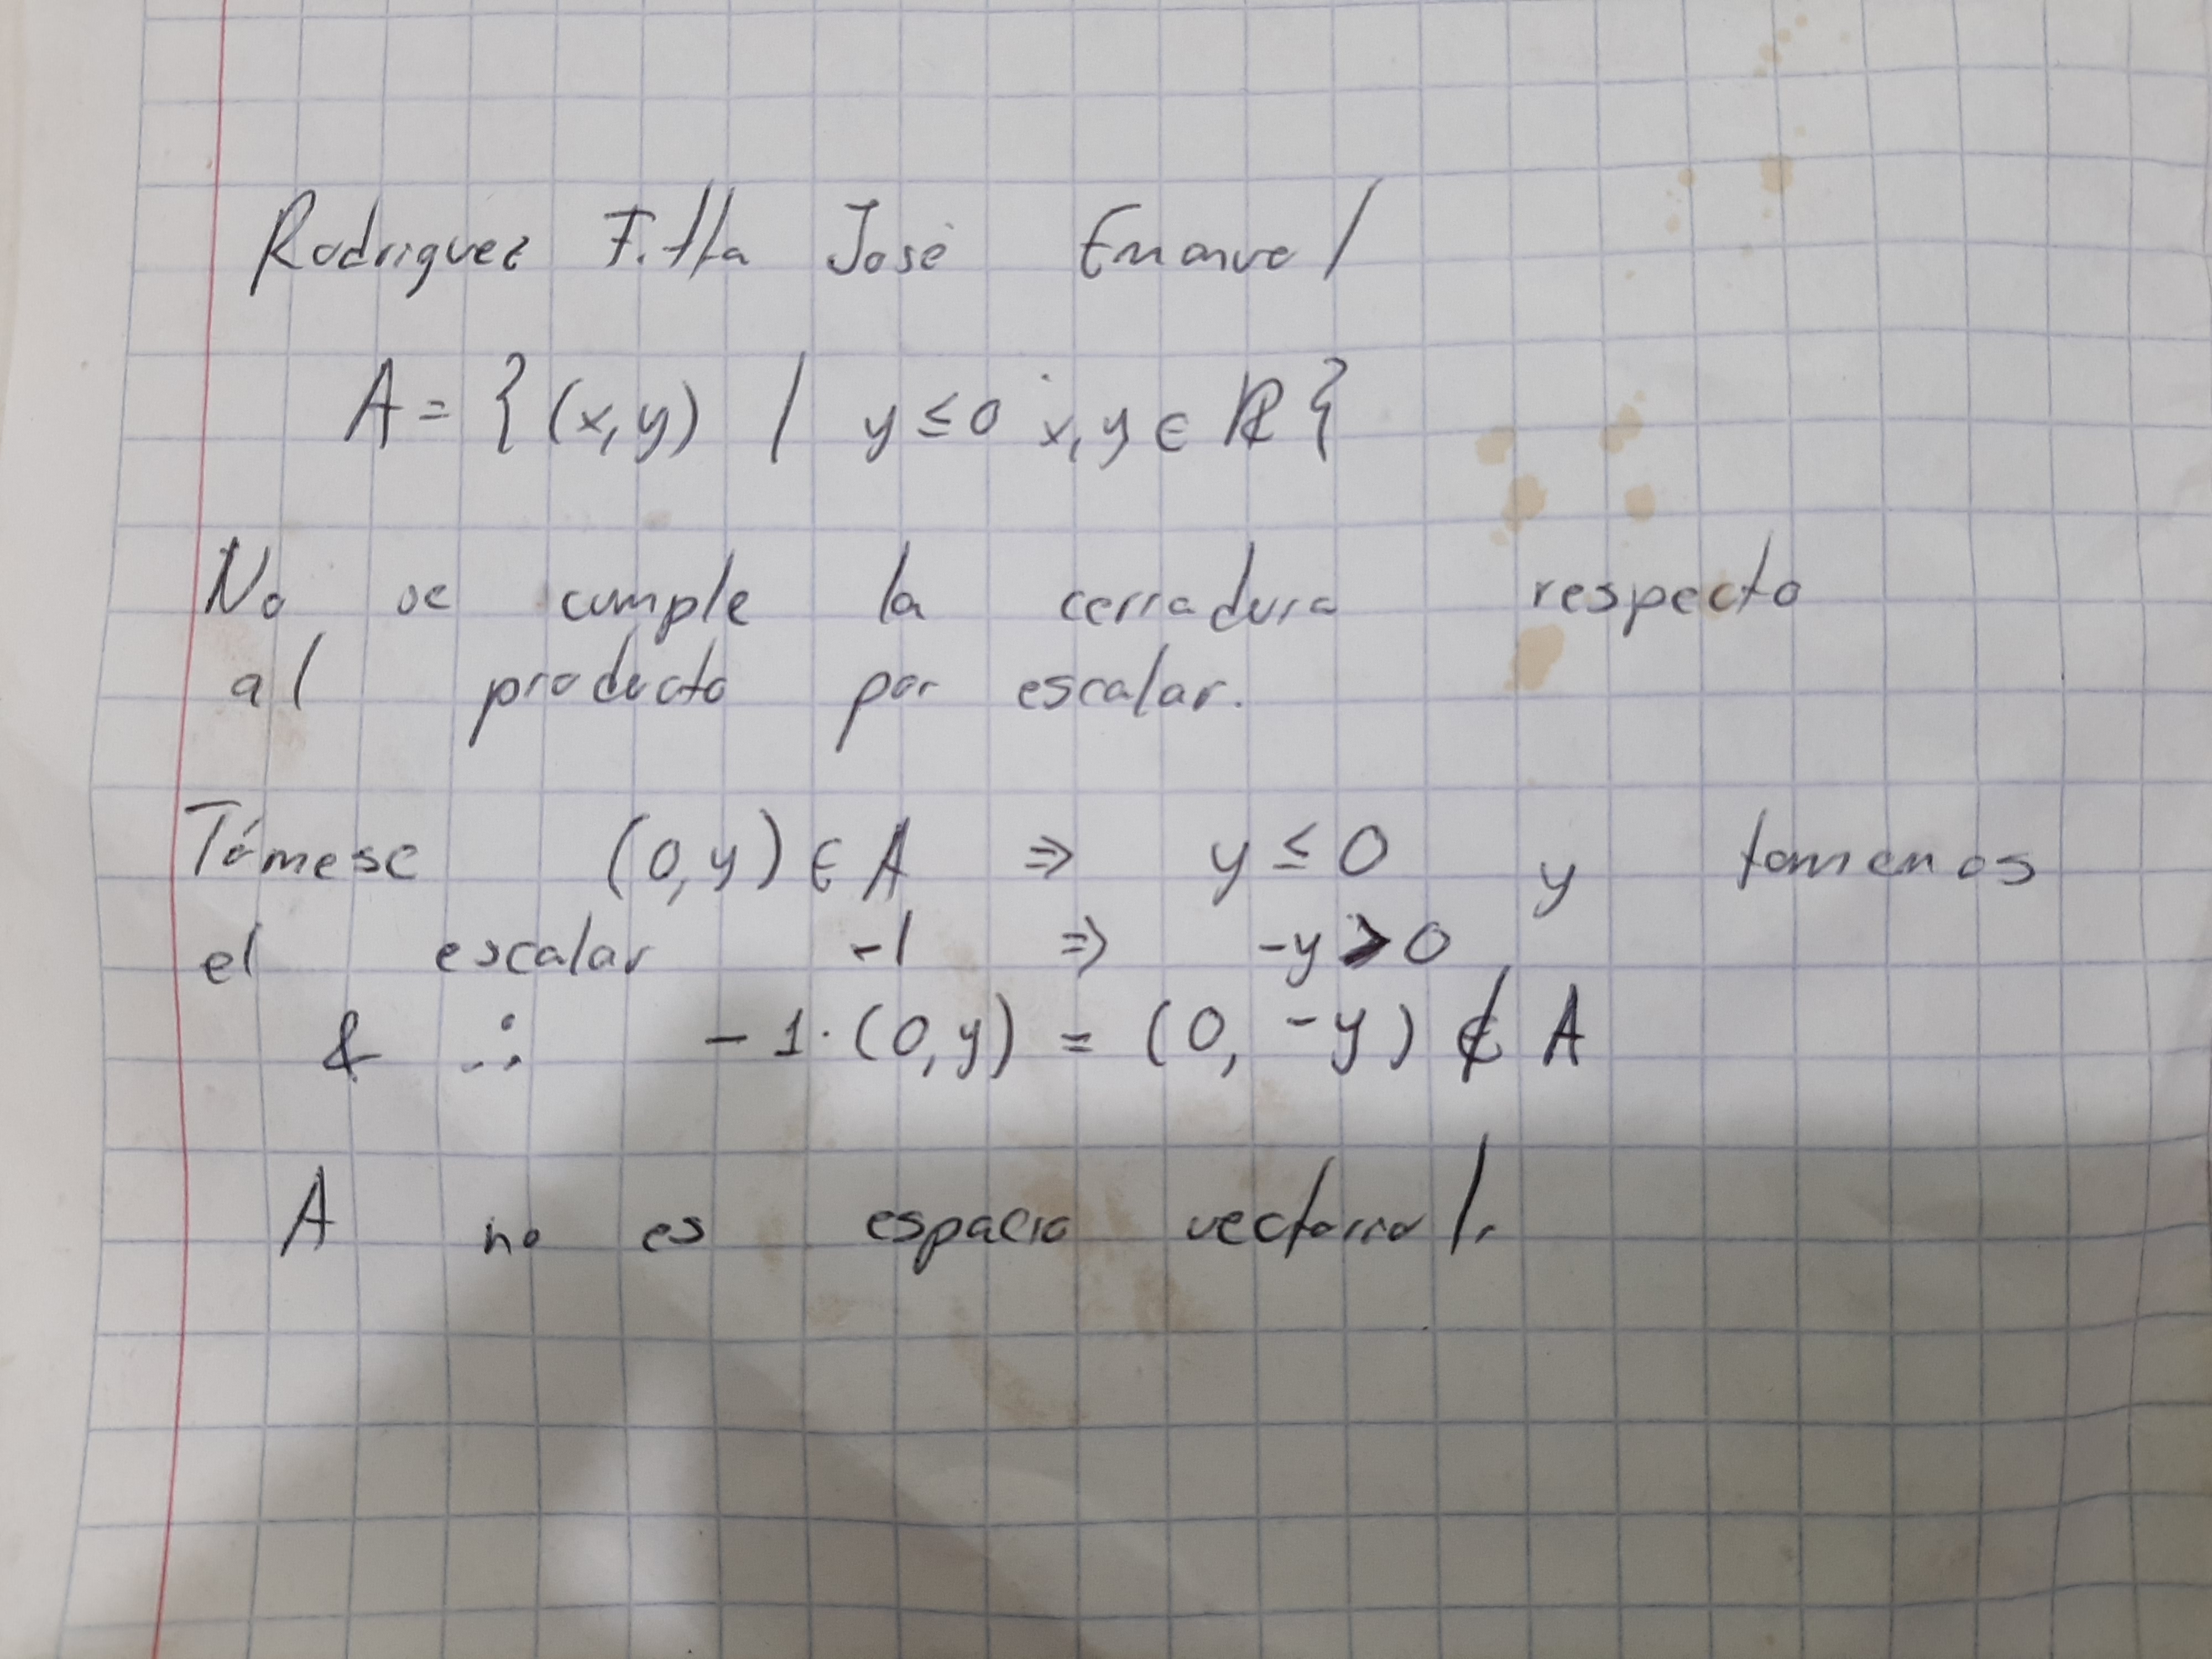 Rodriguez José Emanuel
A = { (x,y) / y ≤ 0 x,y ∈ ℝ }
No se cumple la cerradura respecto
al producto por escalar.
Tómese (0,y) ∈ A ⇒ y ≤ 0 y tomemos
el escalar -1 ⇒ -y > 0
& ∴ -1·(0,y) = (0, -y) ∉ A
A no es espacio vectorial.